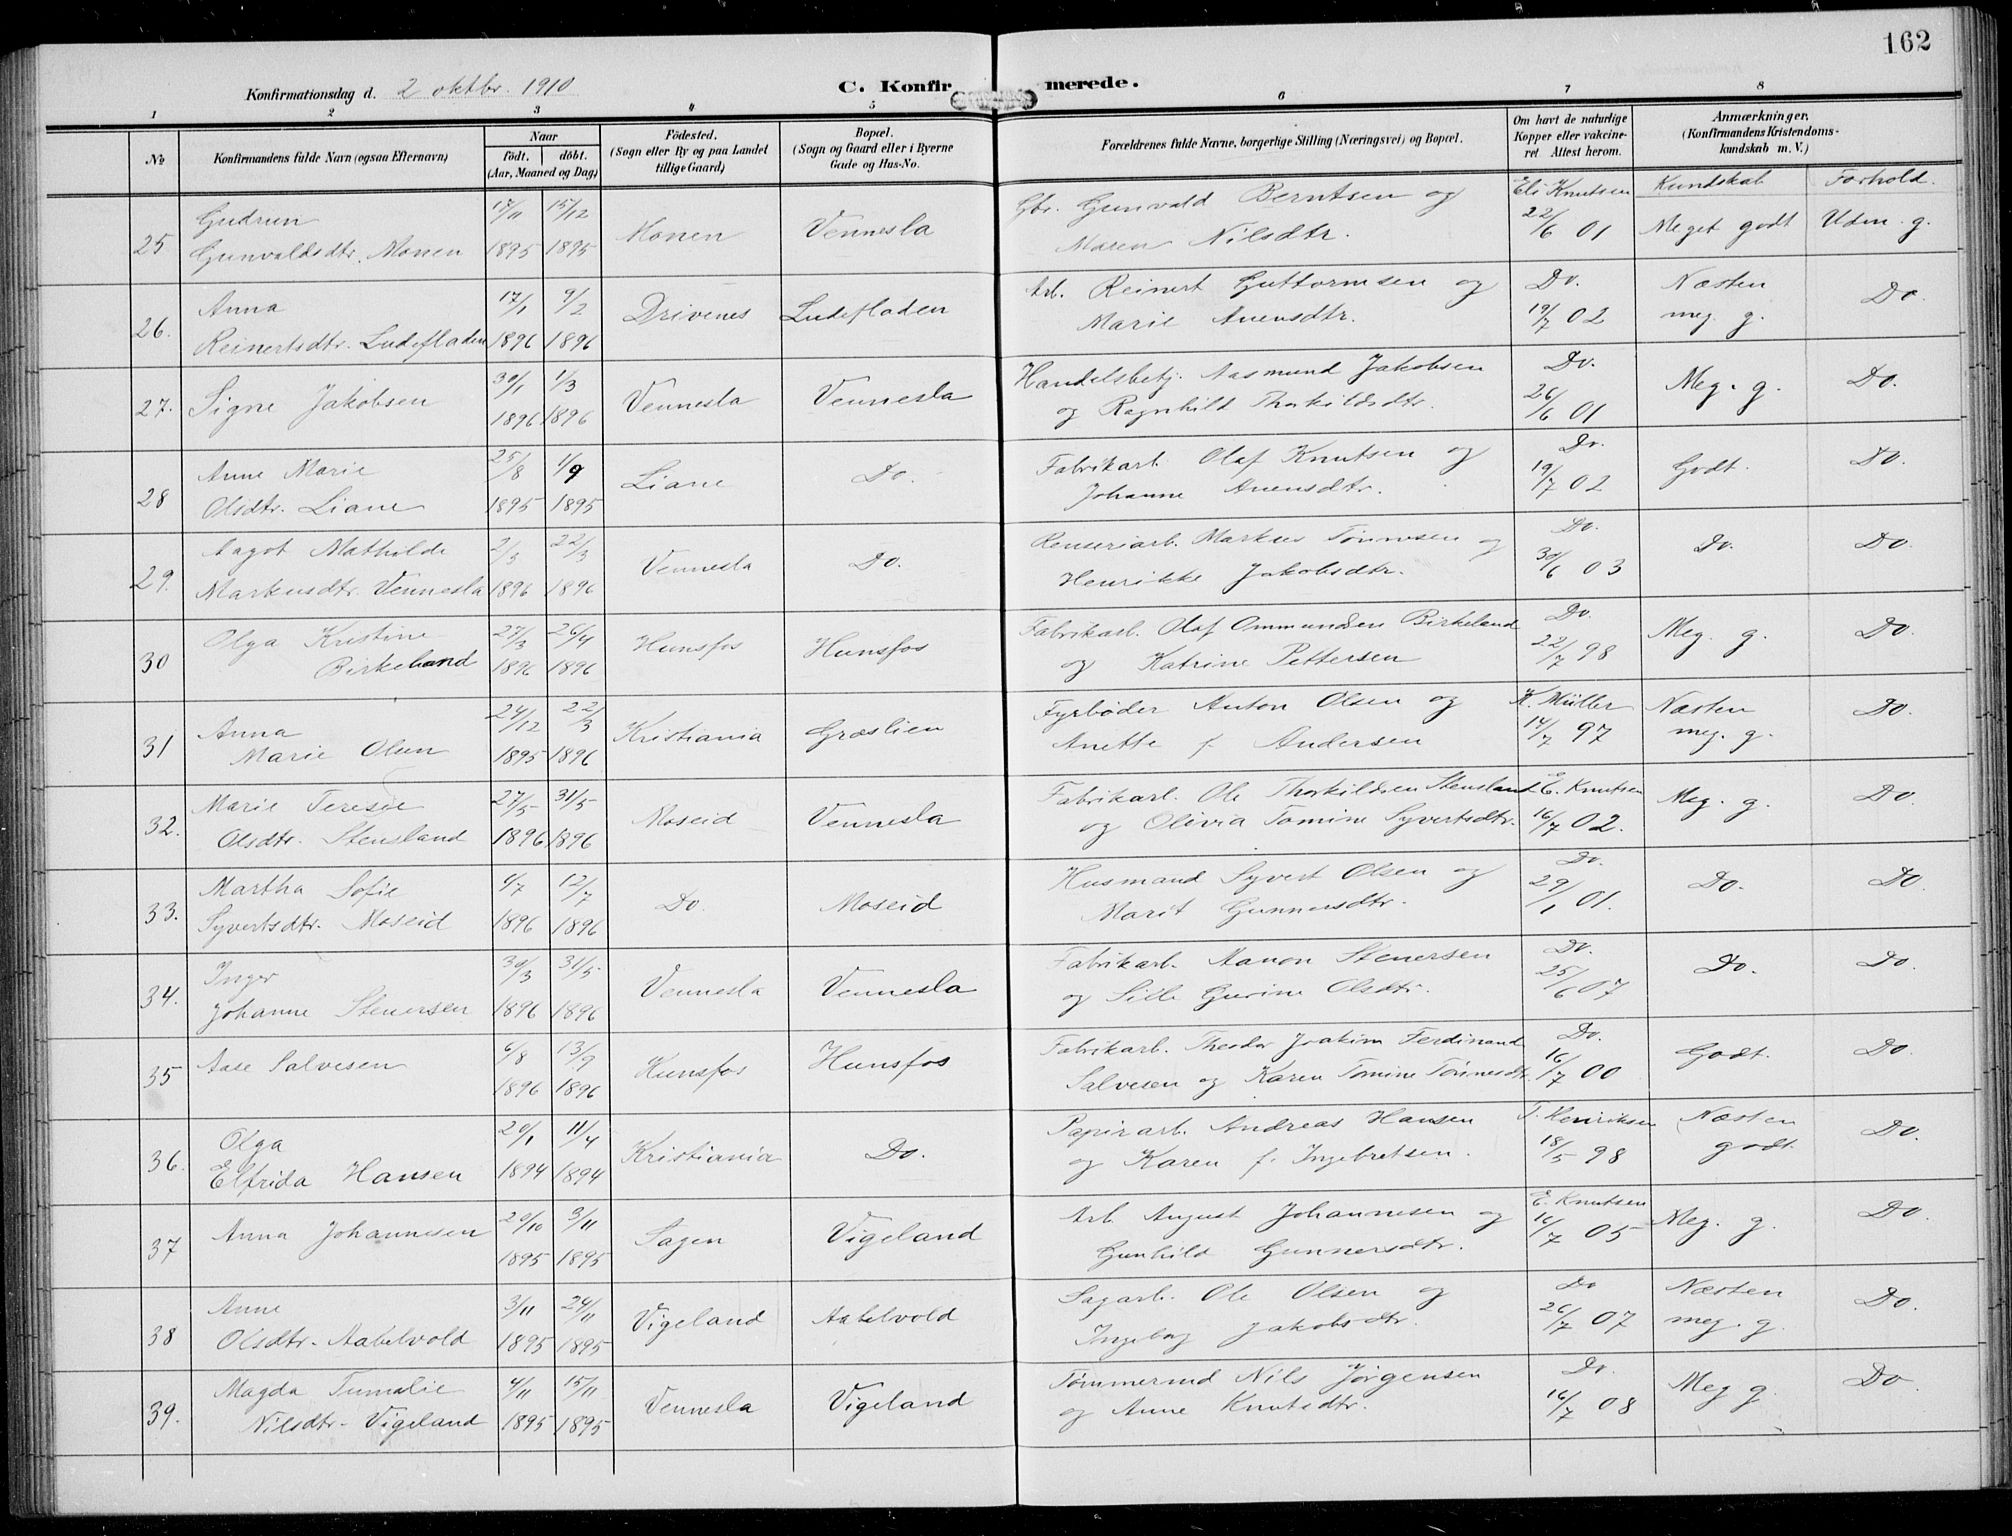 162
Konfirmationsdag d. 2 oktbr. 1910 C. Konfirmerede.
1 2 3 4 5 6 7 8
№ Konfirmandens fulde Navn (ogsaa Efternavn) Naar født. døbt. (Aar, Maaned og Dag) Fødested. (Sogn eller By og paa Landet tillige Gaard) Bopæl. (Sogn og Gaard eller i Byerne Gade og Hus-No. Forældrenes fulde Navne, borgerlige Stilling (Næringsvei) og Bopæl. Om havt de naturlige Kopper eller vakcineret Attest herom. Anmærkninger. (Konfirmandens Kristendomskundskab m. V.)
Kundskab Forhold.
Gudrun 17/11 15/12 Monen Vennesla Gbr. Gunvald Berntsen og Els Knutsen
25 Gunvaldsdtr. Monen 1895 1895 Maren Nilsdtr. 22/6 01 Meget godt Udm. g.
Anna 17/1 9/2 Drivenes Ludefladen Arb. Reinert Guttormsen og Do. Næsten Do
26. Reinertsdtr. Ludefladen 1896 1896 Marie Anensdtr. 19/7 02 meg. g.
27. Signe Jakobsen 30/1 1/3 Vennesla Vennesla Handelsbetj. Aasmund Jakobsen Do. Meg. g. Do.
1896 1896 og Ragnhild Thorkildsdtr. 26/6 01
Anne Marie 25/8 1/9 Liane Do. Fabrikarb. Olaf Knutsen og Do. Godt. Do.
28 Olsdtr. Liane 1895 1895 Johanne Anensdtr. 19/7 02
Aagot Mathilde 2/3 22/3 Vennesla Do. Renseriarb. Markus Tønnesen og Do. Do. Do.
29. Markusdtr. Vennesla 1896 1896 Henrikke Jakobsdtr. 30/6 03
Olga Kristine 27/3 26/4 Hunsfos Hunsfos Fabrikarb. Olaf Ommundsen Birkeland Do. Meg. g. Do.
30 Birkeland 1896 1896 og Katrine Pettersen 22/7 98
Anna 24/12 22/3 Kristiania Græslien Fyrbøder Anton Olsen og K. Müller Næsten Do.
31 Marie Olsen 1895 1896 Anette f. Andersen 14/7 97 meg. g.
Marie Teresie 27/5 31/5 Moseid Vennesla Fabrikarb. Ole Thorkildsen Stensland E. Knutsen Meg. g. Do.
32. Olsdtr. Stensland 1896 1896 og Olivia Tomine Syvertsdtr. 16/7 02.
Martha Sofie 4/7 12/7 Do. Moseid Husmand Syvert Olsen og Do. Do. Do.
33. Syvertsdtr. Moseid 1896 1896 Marit Gunnersdtr. 29/1 01.
Inger 30/3 31/5 Vennesla Vennesla Fabrikarb. Aanon Stenersen Do. Do. Do.
34. Johanne Stenersen 1896 1896 og Sille Gurine Olsdtr. 25/6 07
35 Aase Salvesen 6/8 13/9 Hunsfos Hunsfos Fabrikarb. Theodor Joakim Ferdinand Do. Godt. Do.
1896 1896 Salvesen og Karen Tomine Tønnesdtr. 16/7 00
Olga 20/1 11/4 Kristiania Do. Papirarb. Andreas Hansen T. Henriksen Næsten Do.
36. Elfrida Hansen 1894 1894 og Karen f. Ingebretsen. 18/5 98 godt.
37 Anna Johannesen 20/10 3/11 Sagen Vigeland Arb. August Johannesen og E. Knutsen Meg. g. Do.
1895 1895 Gunhild Gunnersdtr. 16/7 05
Anne 3/11 24/11 Vigeland Aabelvold Sagarb. Ole Olsen og Do Næsten Do.
38 Olsdtr. Aabelvold 1895 1895 Ingeborg Jakobsdtr. 26/7 07 meg. g.
Magda Tumalie 4/11 15/11 Vennesla Vigeland Tømmermd Nils Jørgensen Do. Meg g. Do
39. Nilsdtr. Vigeland 1895 1895 og Anne Knutsdtr. 16/7 08